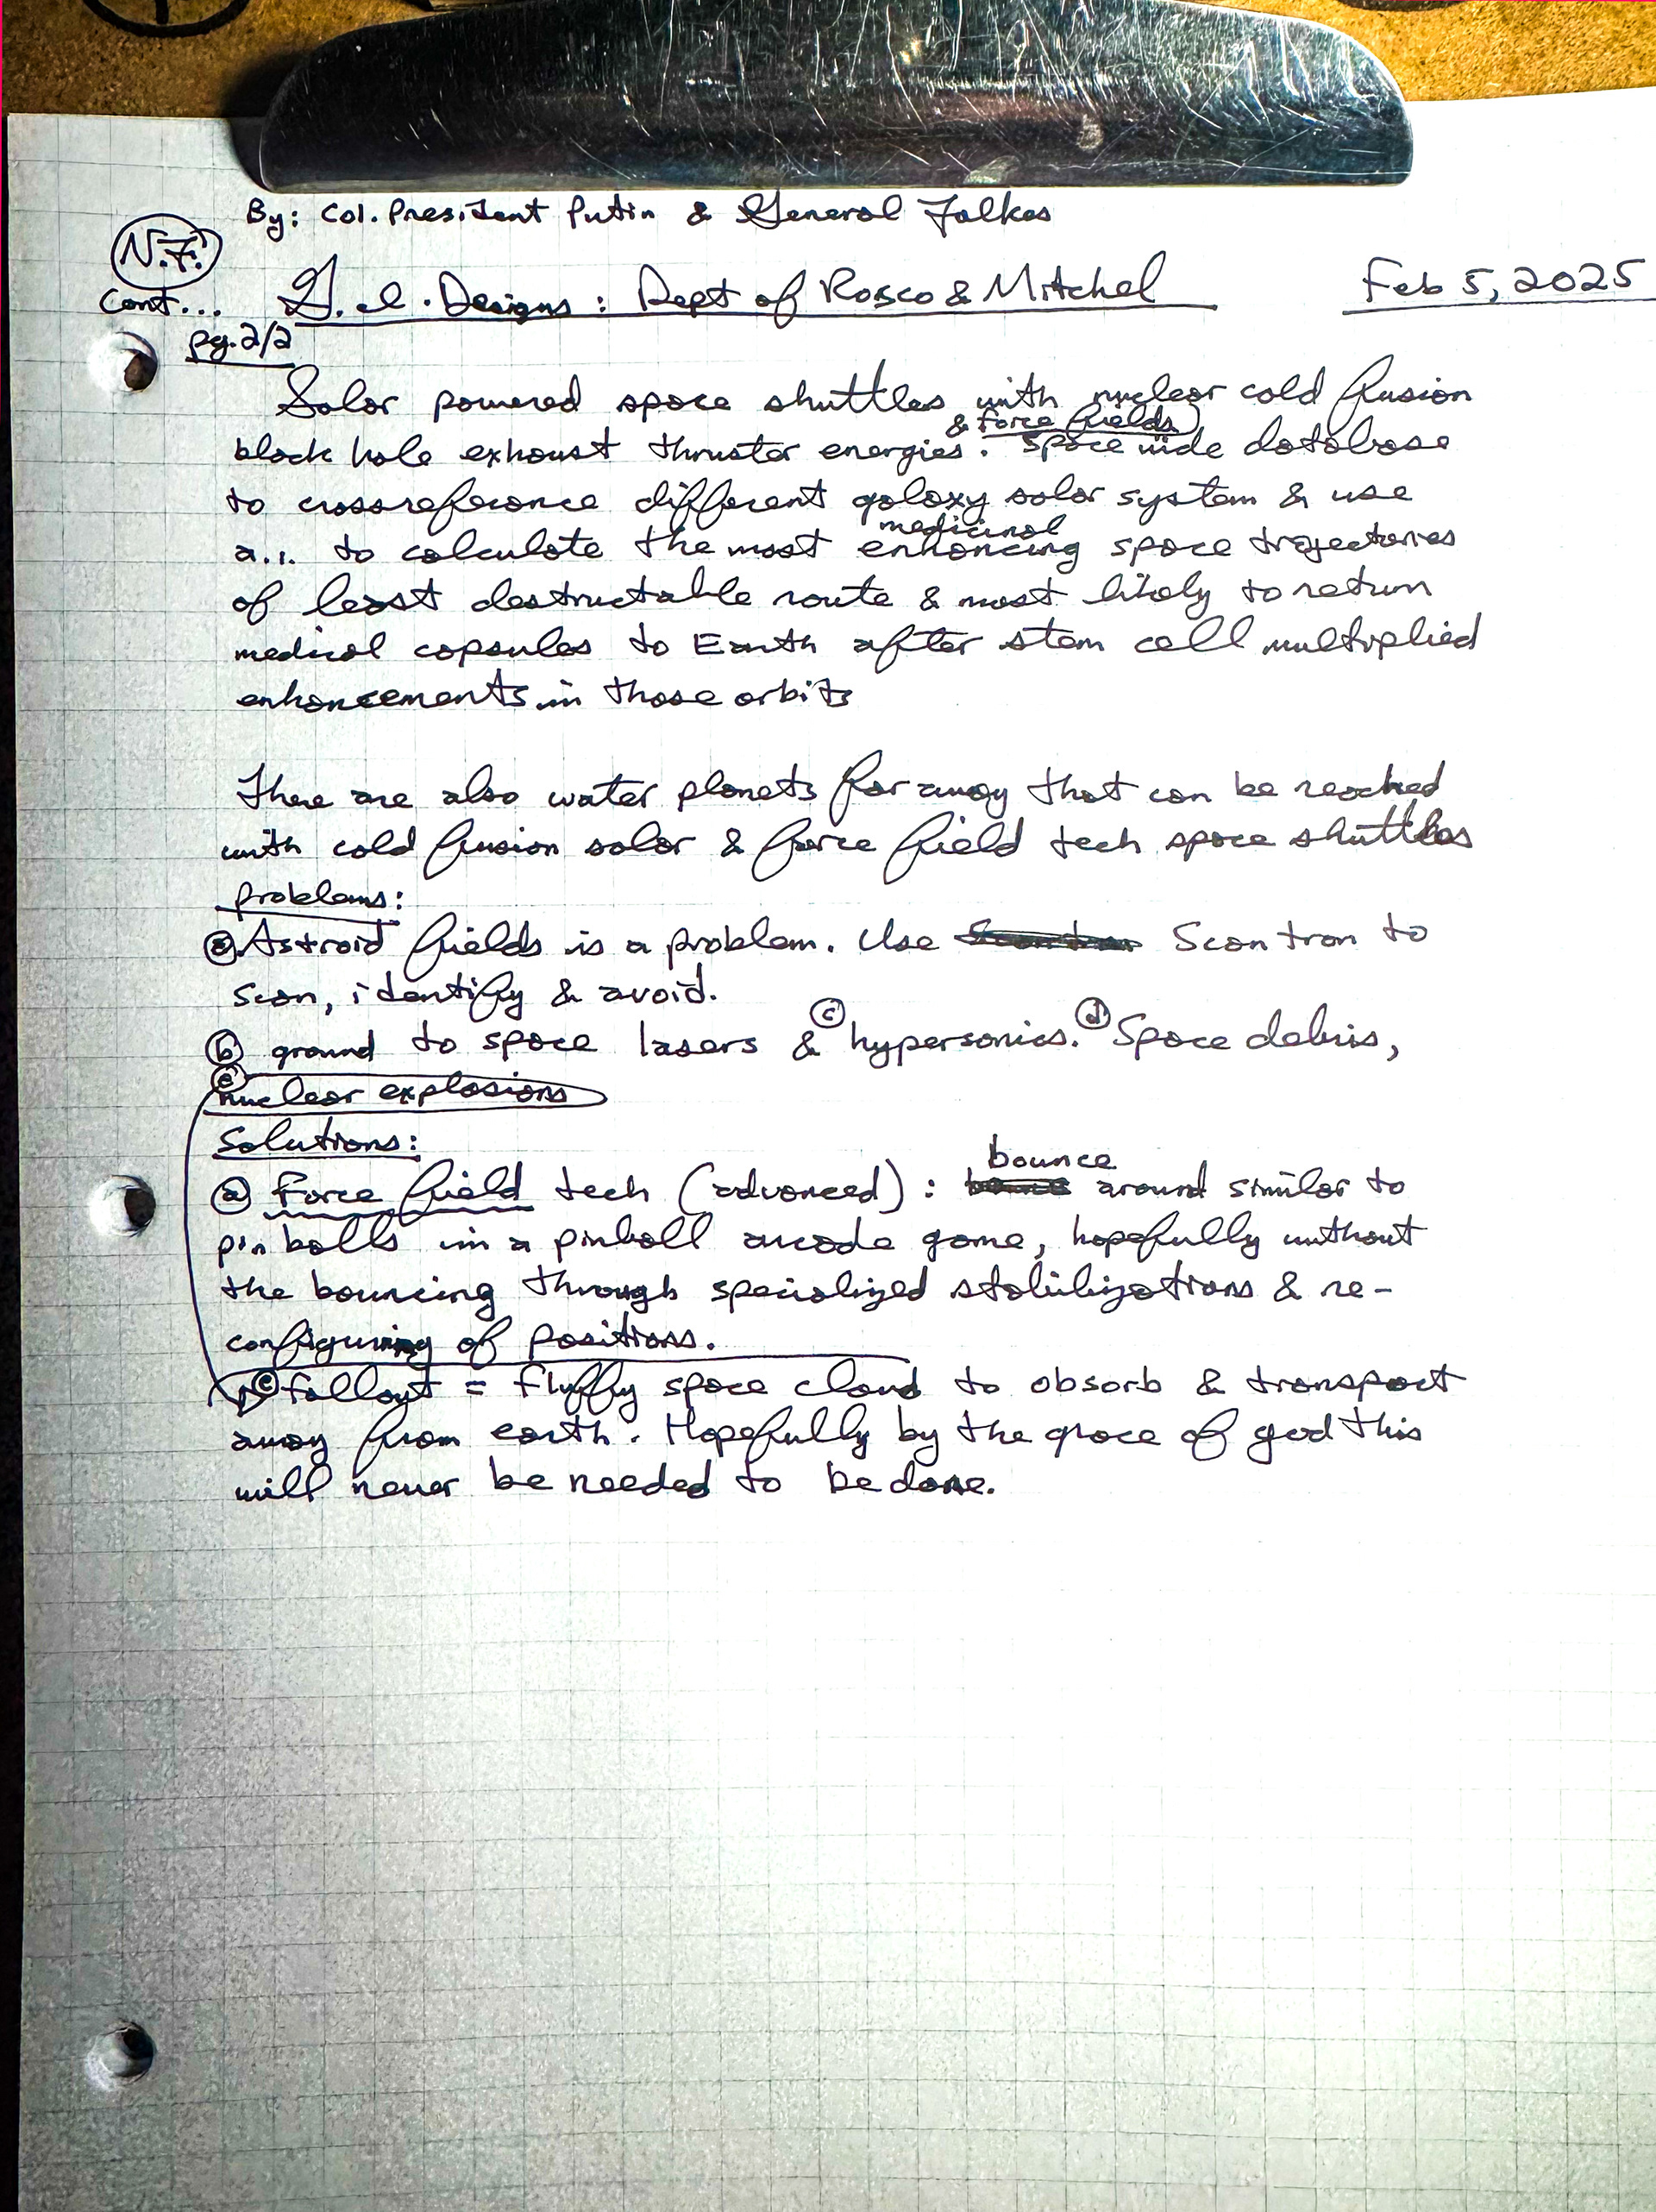 By: Col. President Putin & General Folkes
N.F.
Cont... G.el. Designs: Dept of Rosco & Mitchel Feb 5, 2025
pg. 2/2
Solar powered space shuttles with nuclear cold fusion
& Force fields
black hole exhaust thruster energies. Space wide database
to crossreference different galaxy solar system & use
medicinal
a.i. to calculate the most enhancing space trajectories
of least destructable route & most likely to return
medical capsules to Earth after stem cell multiplied
enhancements in those orbits
There are also water planets far away that can be reached
with cold fusion solar & force field tech space shuttles
problems:
a Astroid fields is a problem. Use Scantron to
scan, identify & avoid.
b ground to space lasers & c hypersonics. d Space debris,
e nuclear explosions
Solutions:
bounce
a Force field tech (advanced): around similar to
pin balls in a pinball arcade game, hopefully without
the bouncing through specialized stabilizations & re-
configuring of positions.
e fallout = fluffy space cloud to absorb & transport
away from earth. Hopefully by the grace of god this
will never be needed to be done.